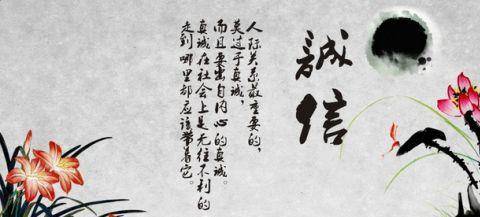 誠信
人际关系最重要的，
莫过于真诚，
而且要出自内心的真诚。
真诚在社会上是无往不利的
走到哪里都应该带着它。